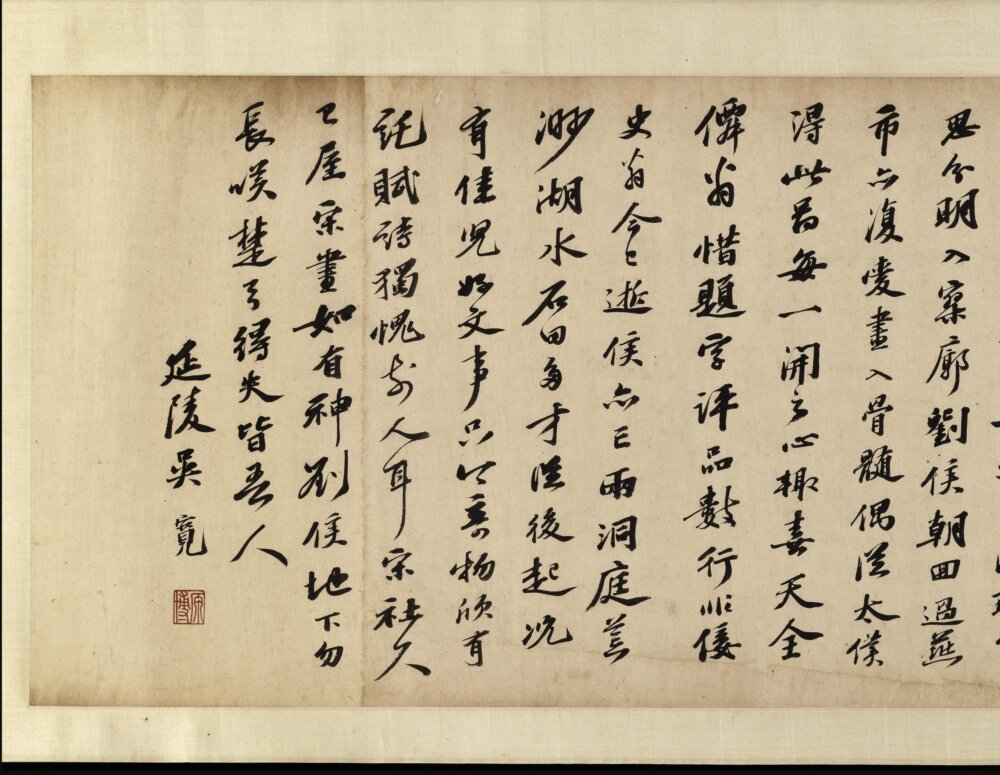 思分明入寥廓劉侯朝回過燕
市亦復愛畫入骨髓偶從太僕
得此圖每一開之心輒喜天全
僊翁惜題字評品數行非倭
史翁今已逝侯亦亡兩洞庭芒
渺湖水石田多才從後起況
有佳兒好文事只今物欣有
託賦詩獨愧前人耳宋社久
已屋宋畫如有神劉侯地下勿
長嘆楚弓得失皆吾人
延陵吳寬
原博